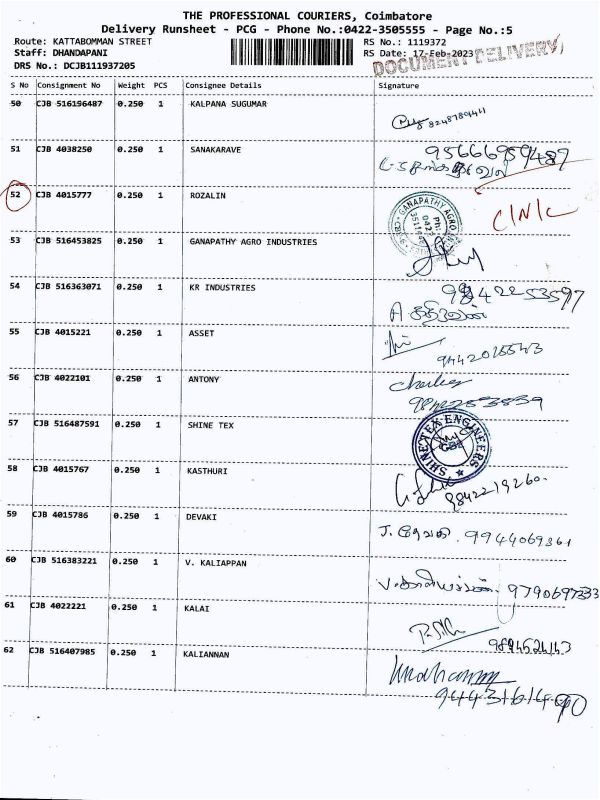 THE PROFESSIONAL COURIERS, Coimbatore
Delivery Runsheet - PCG - Phone No.:0422-3505555 - Page No.:5
Route: KATTABOMMAN STREET RS No.: 1119372
Staff: DHANDAPANI RS Date: 17-Feb-2023
DOCUMENT DELIVERY
DRS No.: DCJB111937205
S No Consignment No Weight PCS Consignee Details Signature
50 CJB 516196487 0.250 1 KALPANA SUGUMAR
51 CJB 4038250 0.250 1 SANAKARAVE
9566695487
52 CJB 4015777 0.250 1 ROZALIN
GANAPATHY AGRO
CINIC
53 CJB 516453825 0.250 1 GANAPATHY AGRO INDUSTRIES
54 CJB 516363071 0.250 1 KR INDUSTRIES
55 CJB 4015221 0.250 1 ASSET
56 CJB 4022101 0.250 1 ANTONY
57 CJB 516487591 0.250 1 SHINE TEX
SHINE TEX ENGINEERS
CBE
58 CJB 4015767 0.250 1 KASTHURI
9842219260
59 CJB 4015786 0.250 1 DEVAKI
J. தேவகி 9944069361
60 CJB 516383221 0.250 1 V. KALIAPPAN
V. காளியப்பன். 9790697333
61 CJB 4022221 0.250 1 KALAI
62 CJB 516407985 0.250 1 KALIANNAN